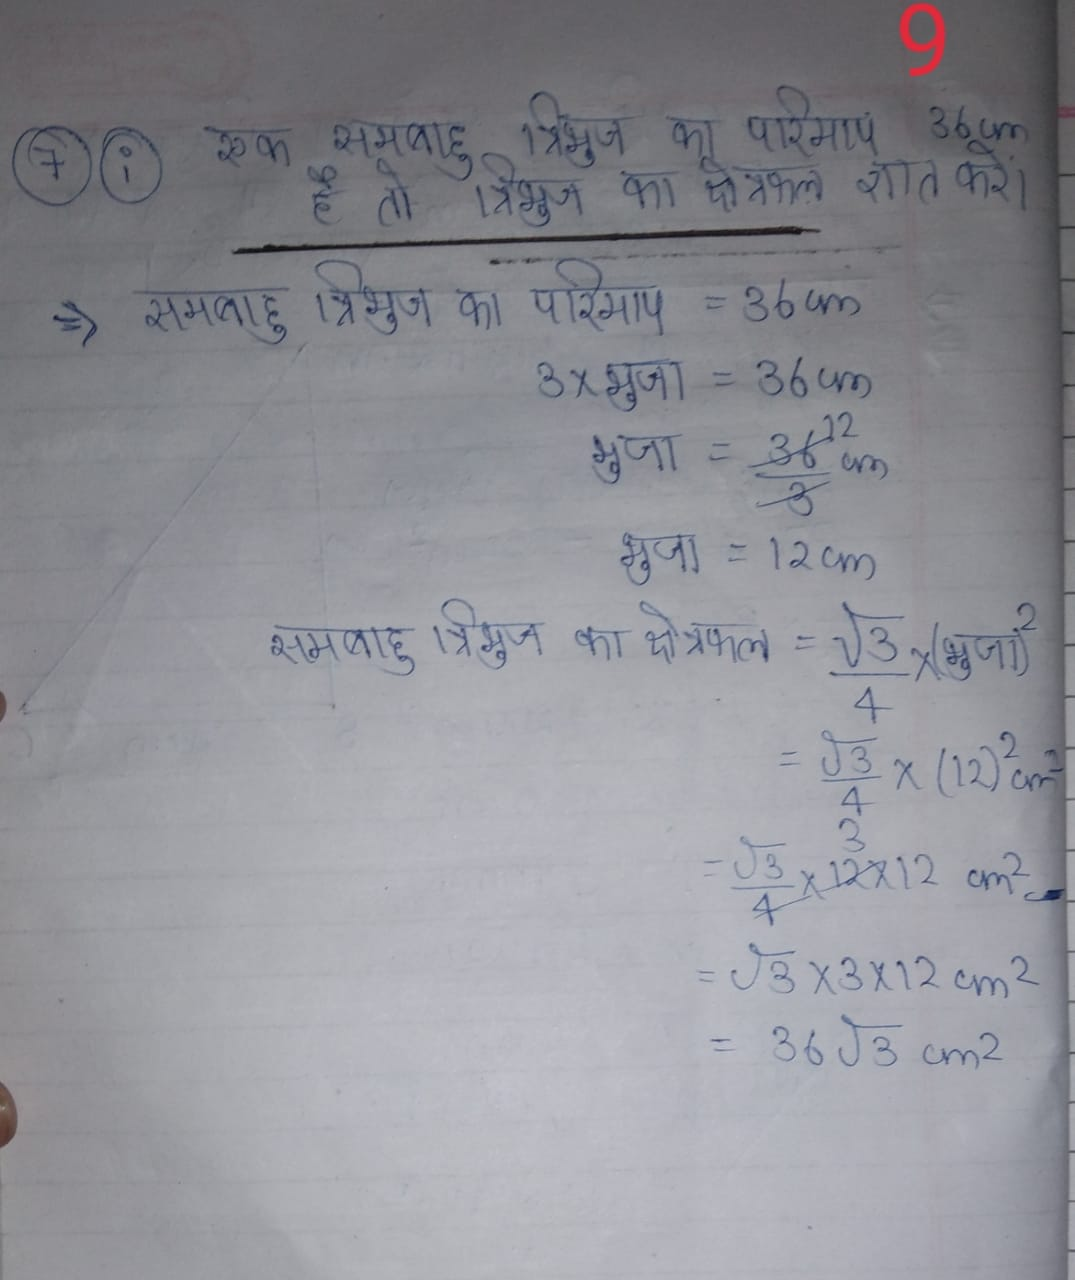 9
7 i एक समबाहु त्रिभुज का परिमाप 36 cm
है तो त्रिभुज का क्षेत्रफल ज्ञात करें।
⇒ समबाहु त्रिभुज का परिमाप = 36 cm
3 × भुजा = 36 cm
भुजा = 36/3 12 cm
भुजा = 12 cm
समबाहु त्रिभुज का क्षेत्रफल = √3/4 × (भुजा)²
= √3/4 × (12)² cm²
= √3/4 × 12 × 12 cm² 3
= √3 × 3 × 12 cm²
= 36√3 cm²